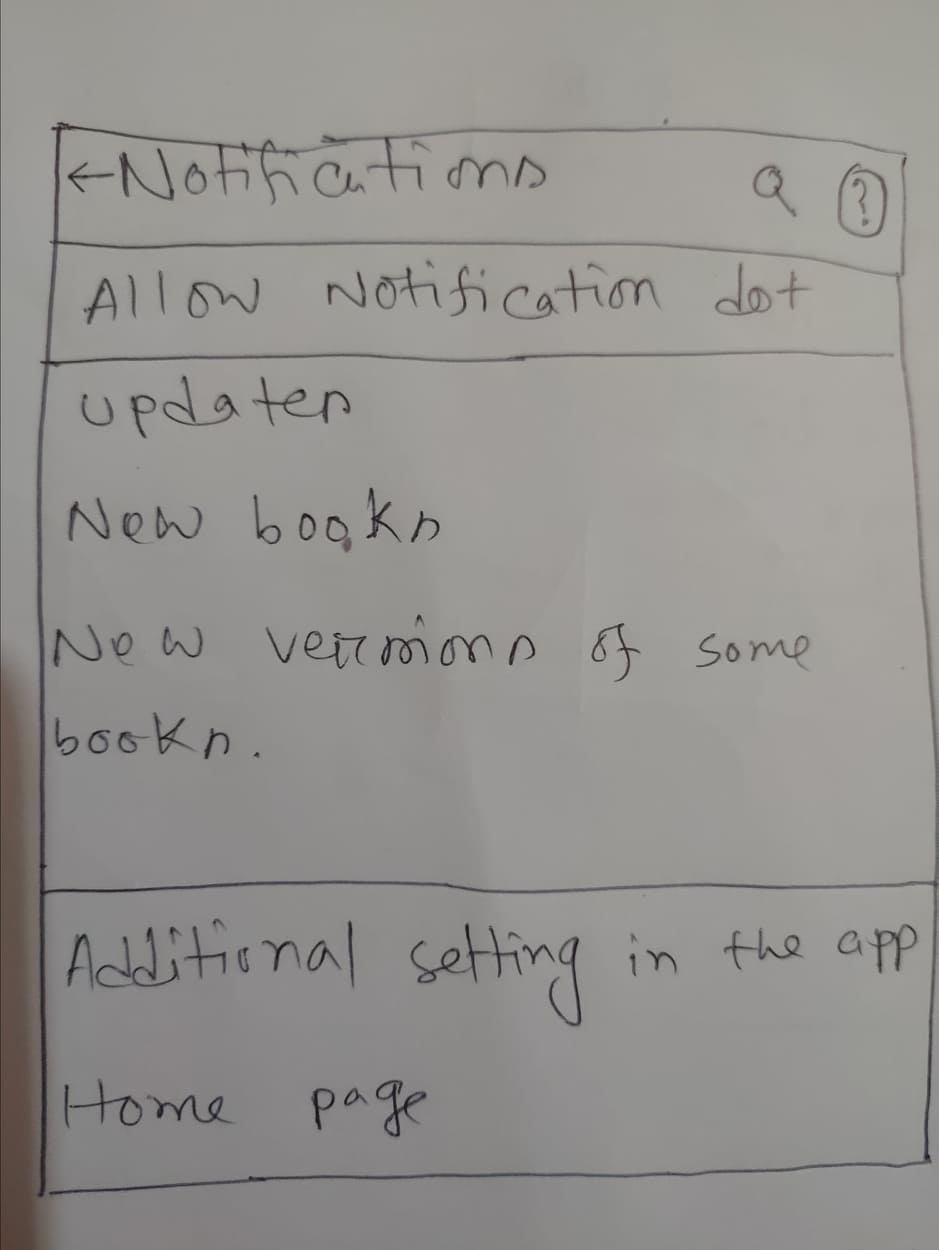 ←Notifications Q ?
Allow Notification dot
updates
New books
New versions of some
books.
Additional setting in the app
Home page